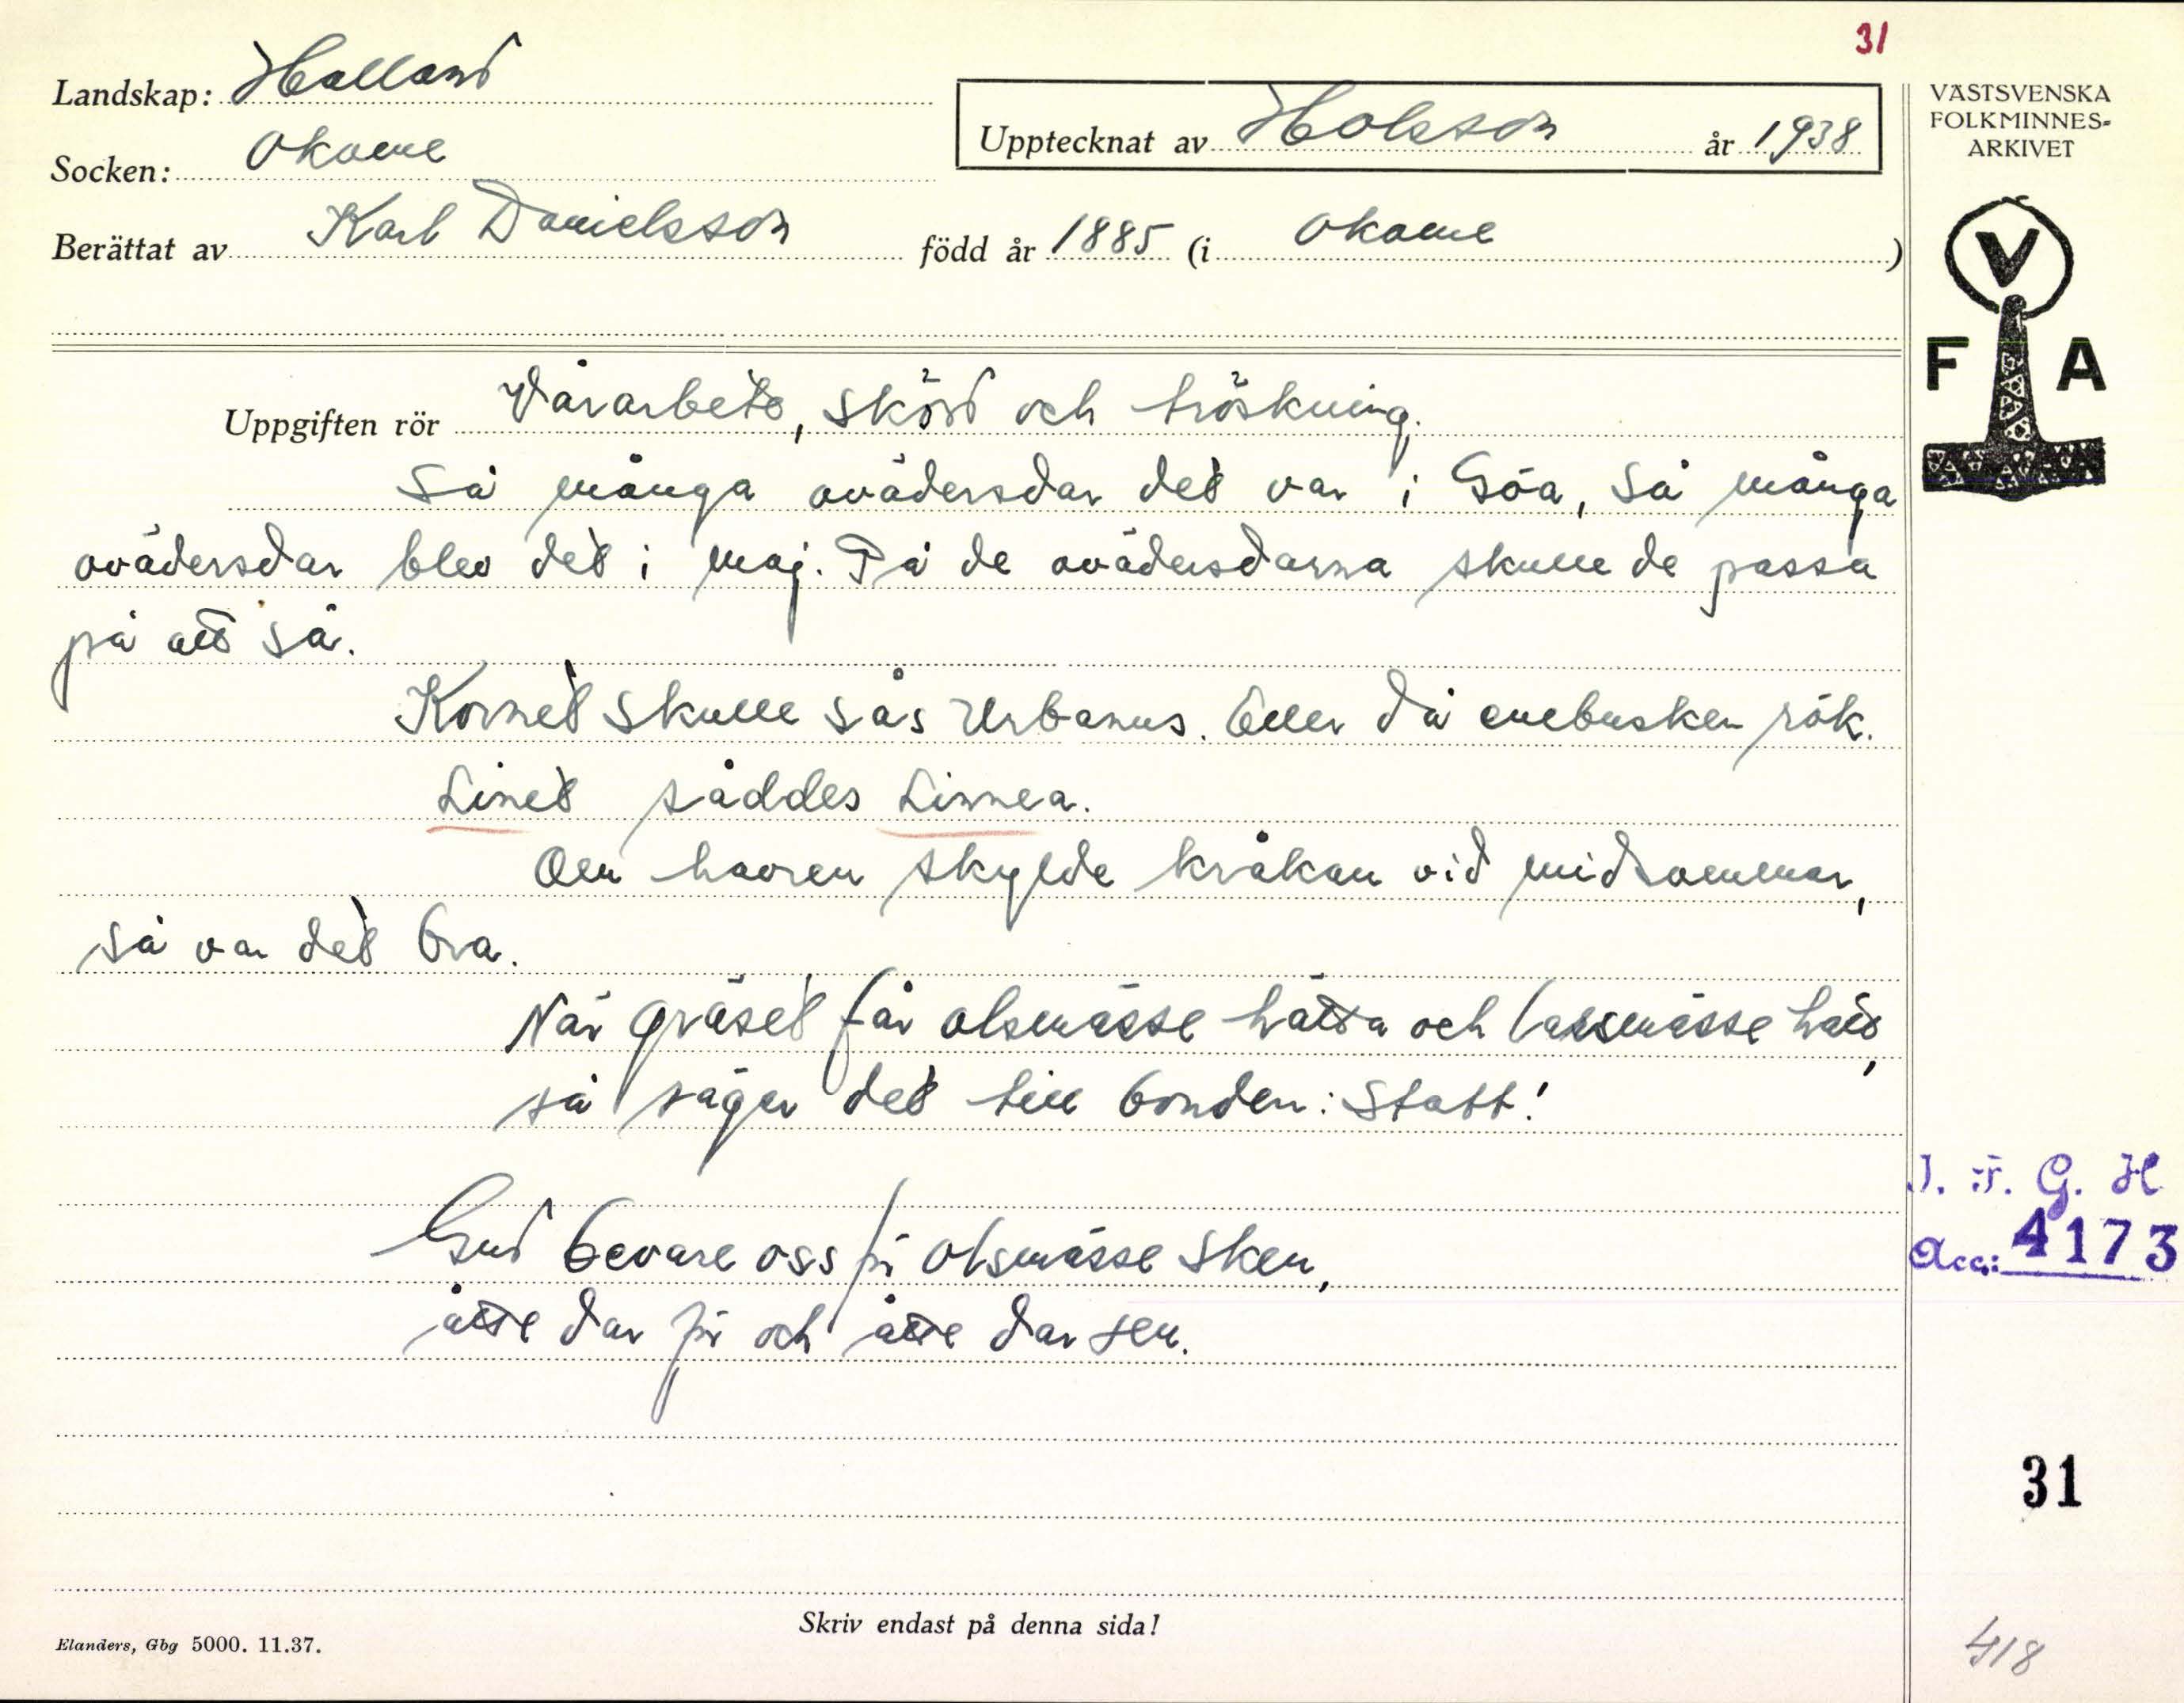 31
Landskap: Halland
Socken: Okome
Upptecknat av Holsson år 1938
Berättat av Karl Danielsson född år 1885 (i Okome )
VÄSTSVENSKA
FOLKMINNES-
ARKIVET
V
F A
Uppgiften rör Vårarbete, skörd och tröskning.
Så många ovädersdar det var i Göa, så många
ovädersdar blev det i maj. På de ovädersdarna skulle de passa
på att så.
Kornet skulle sås Urbanus. Eller då enebusken rök.
Linet såddes Linnea.
Om havren skylde kråkan vid midsommar,
så var det bra.
När gräset får olsmässe hätta och larsmässe hatt,
så säger det till bonden: Statt!
Gud bevare oss för olsmässe sken,
åtte dar för och åtte dar sen.
I. F. G. H
Acc.: 4173
31
Skriv endast på denna sida!
Elanders, Gbg 5000. 11.37.
418